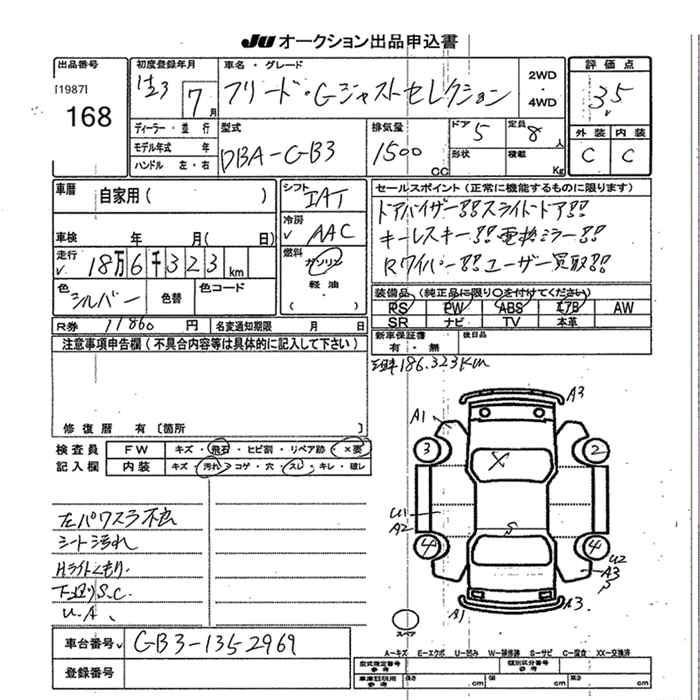 JU オークション出品申込書
出品番号
[1987]
168
初度登録年月
H23 7月
車名・グレード
フリード・Gジャストセレクション
2WD
・
4WD
評価点
3.5
外装 内装
C C
ディーラー・並行
モデル年式 年
ハンドル 左・右
型式
DBA-GB3
排気量
1500 CC
ドア 5
定員 8 人
形状
積載 Kg
車歴
自家用( )
車検 年 月( 日)
走行 √ 18万6千323 km
色 シルバー
色替
色コード
R券 11860 円
名変通知期限 月 日
シフト IAT
冷房 √ AAC
燃料
ガソリン
軽油
( ・ )
セールスポイント(正常に機能するものに限ります)
ドアバイザー!!スライドドア!!
キーレスキー!!電格ミラー!!
Rワイパー!!ユーザー買取!!
装備品(純正品に限り○を付けてください)
PS PW ABS エアB AW
SR ナビ TV 本革
新車保証書 後日品
有・無
注意事項申告欄(不具合内容等は具体的に記入して下さい)
修復歴 有〔箇所 〕
186.323Km
検査員
記入欄
FW キズ・飛石・ヒビ割・リペア跡・×要
内装 キズ・汚れ・コゲ・穴・スレ・キレ・破レ
左パワスラ不良
シート汚れ
Hライトくもり.
下廻りS.C.
U.A.
A3
A1
3
2
X
U1
A2
S
4
4
U2
A3
S
A1
A3
スペア
A−キズ E−エクボ U−凹み W−補修跡 S−サビ C−腐食 XX−交換済
車台番号√ GB3-1352969
登録番号
型式指定番号
参考
類別区分番号
参考
車庫証明用
参考
長さ cm 幅 cm 高さ cm